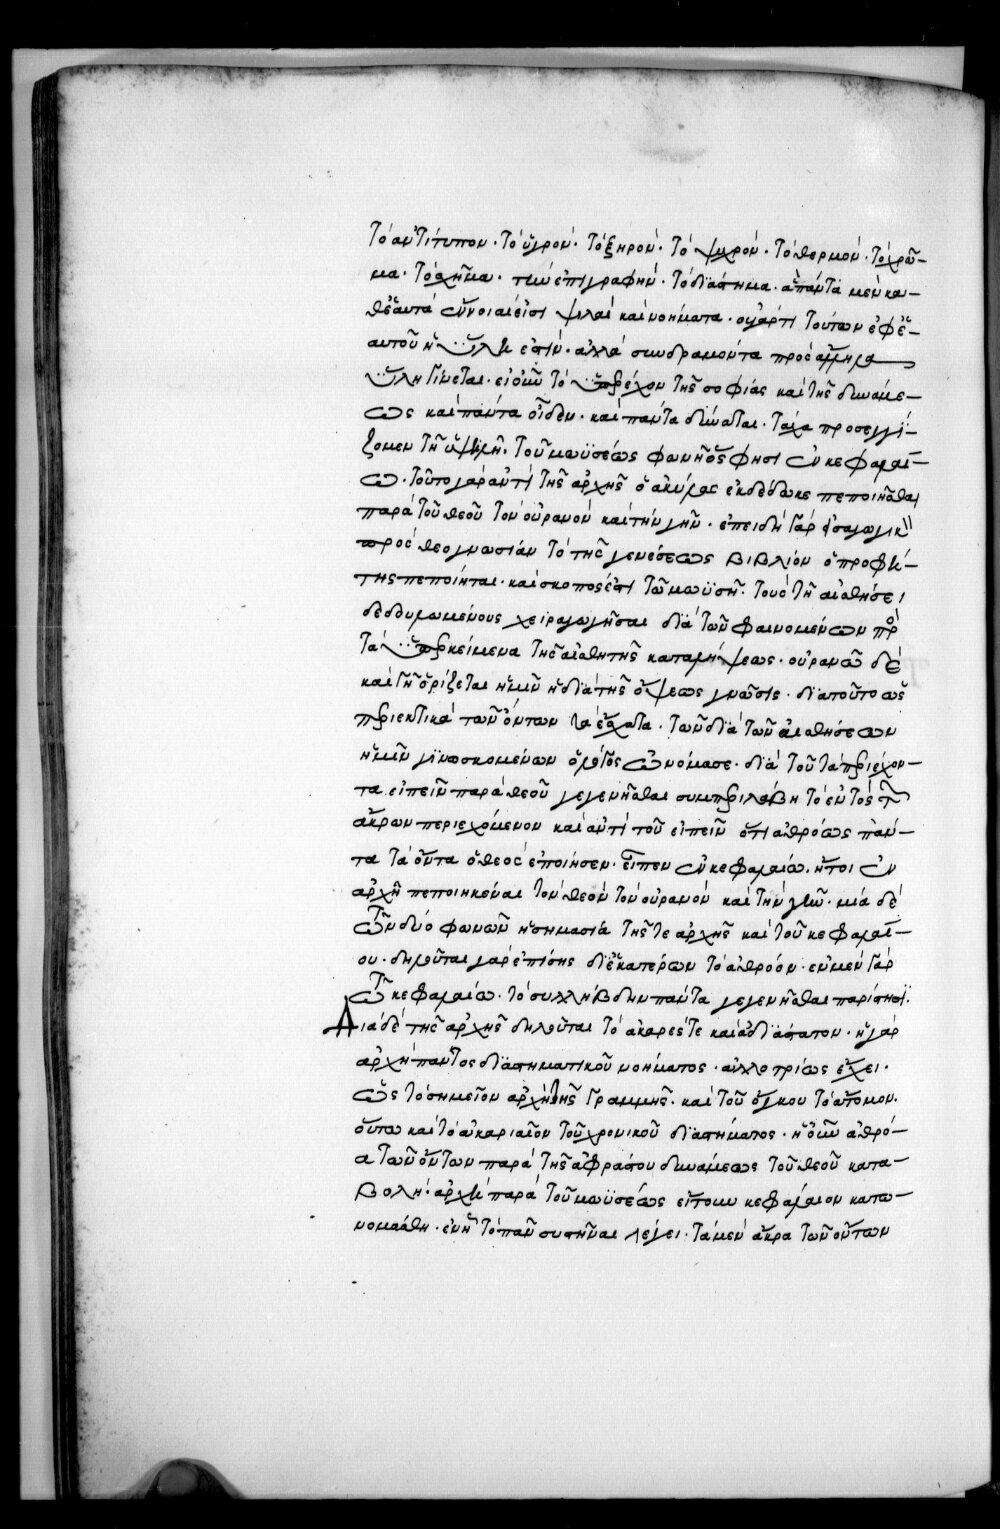 τὸ ἀντίτυπον· τὸ ὑγρόν· τὸ ξηρόν· τὸ ψυχρόν· τὸ θερμόν· τὸ χρῶ-
μα· τὸ σχῆμα· τὴν ἐπιγραφήν· τὸ διάστημα· ἃ πάντα μὲν κα-
θ' ἑαυτὰ ἔννοιαι εἰσὶ ψιλαὶ καὶ νοήματα· οὐ γάρ τι τούτων ἐφ' ἑ-
αυτοῦ ἡ ὕλη ἐστίν· ἀλλὰ συνδραμόντα πρὸς ἄλληλα
ὕλη γίνεται· εἰ οὖν τὸ ὑπερέχον τῆς σοφίας καὶ τῆς δυνάμε-
ως καὶ πάντα οἶδεν· καὶ πάντα δύναται· τάχα προσεγγί-
ζομεν τῇ ὑψηλῇ τοῦ μωϋσέως φωνῇ ὅς φησι ἐν κεφαλαί-
ω· τοῦτο γὰρ ἀντὶ τῆς ἀρχῆς ὁ ἀκύλας ἐκδέδωκε πεποιῆσθαι
παρὰ τοῦ θεοῦ τὸν οὐρανὸν καὶ τὴν γῆν· ἐπειδὴ γὰρ εἰσαγωγικ
πρὸς θεογνωσίαν τὸ τῆς γενέσεως βιβλίον ὁ προφή-
της πεποίηται· καὶ σκοπός ἐστι τῷ μωϋσῇ· τοὺς τῇ αἰσθήσει
δεδουλωμένους χειραγωγῆσαι διὰ τῶν φαινομένων πρὸ
τὰ ὑπερκείμενα τῆς αἰσθητῆς καταλήψεως· οὐρανῶ δὲ
καὶ γῆ ὁρίζεται ἡμῖν ἡ διὰ τῆς ὄψεως γνῶσις· διὰ τοῦτο ὡς
περιεκτικὰ τῶν ὄντων τὰ ἔσχατα· τῶν διὰ τῶν αἰσθήσεων
ἡμῖν γινωσκομένων ὁ λόγος ὠνόμασε· διὰ τοῦ τὰ περιέχον-
τα εἰπεῖν παρὰ θεοῦ γεγενῆσθαι συμπεριλάβη τὸ ἐντὸς τῶν
ἄκρων περιεχόμενον καὶ ἀντὶ τοῦ εἰπεῖν ὅτι ἀθρόως πάν-
τα τὰ ὄντα ὁ θεὸς ἐποίησεν· εἶπεν ἐν κεφαλαίω· ἤτοι ἐν
ἀρχῇ πεποιηκέναι τὸν θεὸν τὸν οὐρανὸν καὶ τὴν γῆν· μία δὲ
τῶν δύο φωνῶν ἡ σημασία τῆς τε ἀρχῆς καὶ τοῦ κεφαλαί-
ου· δηλοῦται γὰρ ἐπίσης δι' ἑκατέρων τὸ ἀθρόον· ἐν μὲν γὰρ
τῶ κεφαλαίω· τὸ συλλήβδην πάντα γεγενῆσθαι παρίστησι·
Διὰ δὲ τῆς ἀρχῆς δηλοῦται τὸ ἀκαρές τε καὶ ἀδιάστατον· ἡ γὰρ
ἀρχὴ παντὸς διαστηματικοῦ νοήματος· ἀλλοτρίως ἔχει·
ὡς τὸ σημεῖον ἀρχὴ τῆς γραμμῆς· καὶ τοῦ ὄγκου τὸ ἄτομον·
οὕτω καὶ τὸ ἀκαριαῖον τοῦ χρονικοῦ διαστήματος· ἡ οὖν ἀθρό-
α τῶν ὄντων παρὰ τῆς ἀφράστου δυνάμεως τοῦ θεοῦ κατα-
βολή· ἀρχὴ παρὰ τοῦ μωϋσέως εἴτουν κεφάλαιον κατω-
νομάσθη· ἐν ἧ τὸ πᾶν συστῆναι λέγει· τὰ μὲν ἄκρα τῶν ὄντων